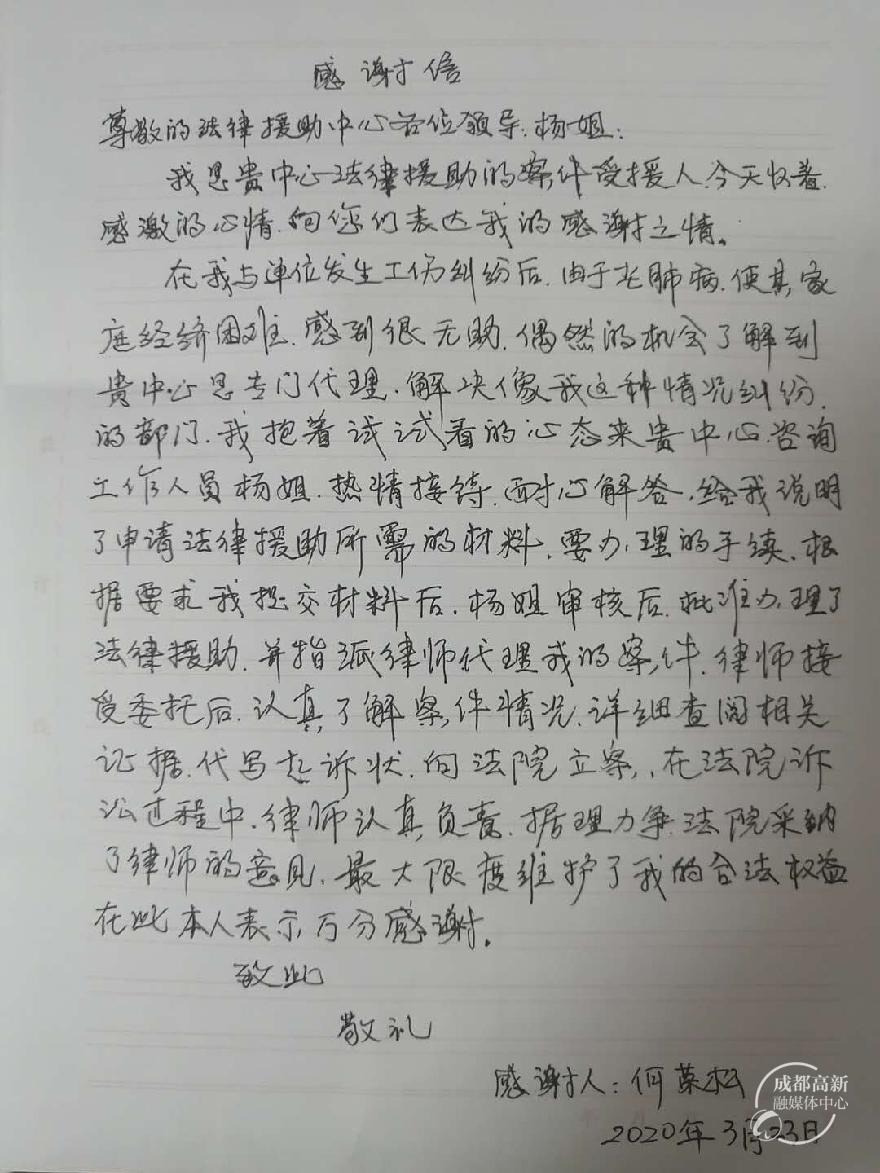 感谢信
尊敬的法律援助中心各位领导、杨姐:
我是贵中心法律援助的案件受援人,今天怀着
感激的心情,向您们表达我的感谢之情。
在我与单位发生工伤纠纷后,由于尘肺病,使其家
庭经济困难,感到很无助,偶然的机会了解到
贵中心是专门代理、解决像我这种情况纠纷
的部门,我抱着试试看的心态来贵中心咨询
工作人员杨姐,热情接待,耐心解答,给我说明
了申请法律援助所需的材料,要办理的手续,根
据要求我提交材料后,杨姐审核后,批准办理了
法律援助,并指派律师代理我的案件,律师接
受委托后,认真了解案件情况,详细查阅相关
证据,代写起诉状,向法院立案,在法院诉
讼过程中,律师认真负责,据理力争,法院采纳
了律师的意见,最大限度维护了我的合法权益
在此本人表示万分感谢。
致此
敬礼
感谢人:何荣松
2020年3月23日
成都高新
融媒体中心